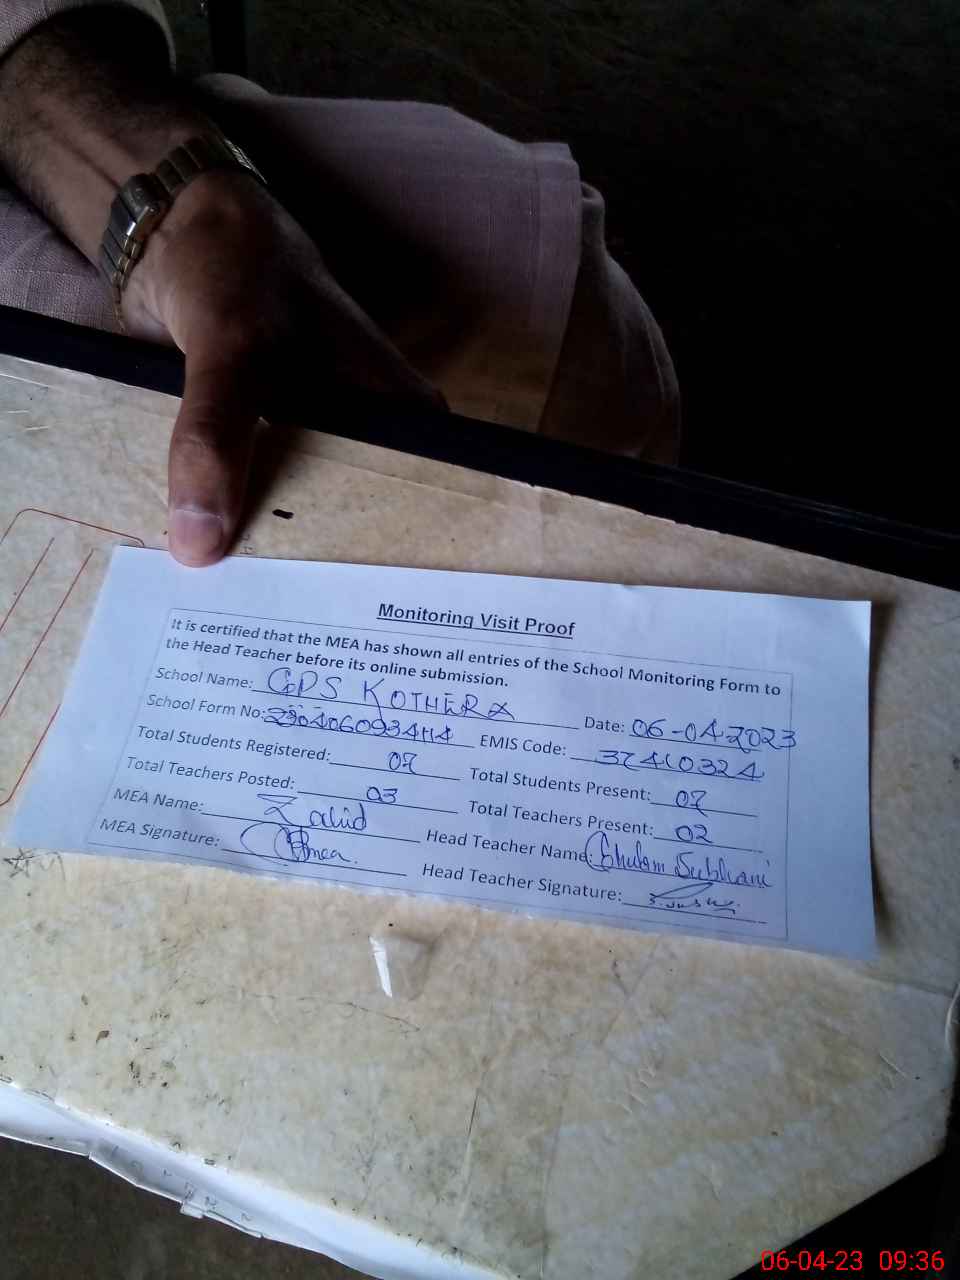 Monitoring Visit Proof
It is certified that the MEA has shown all entries of the School Monitoring Form to
the Head Teacher before its online submission.
School Name: GPS KOTHERA Date: 06-04-2023
School Form No: EMIS Code: 37410324
Total Students Registered: 07 Total Students Present: 07
Total Teachers Posted: 03 Total Teachers Present: 02
MEA Name: Zahid Head Teacher Name: Ghulam Subhani
MEA Signature: Head Teacher Signature:
06-04-23 09:36